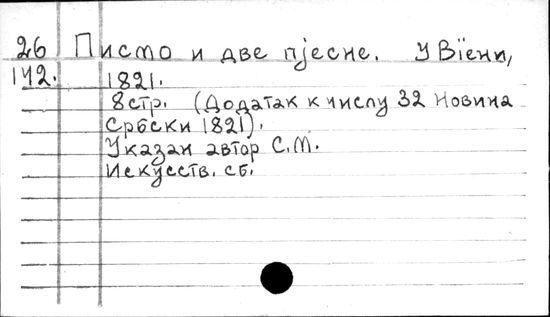 26 Писмо и две пјесне. У Вїени,
142. 1821.
8 стр. (Додатак к числу 32 Новина
Србски 1821).
Указан автор С.М.
Искусств. сб.